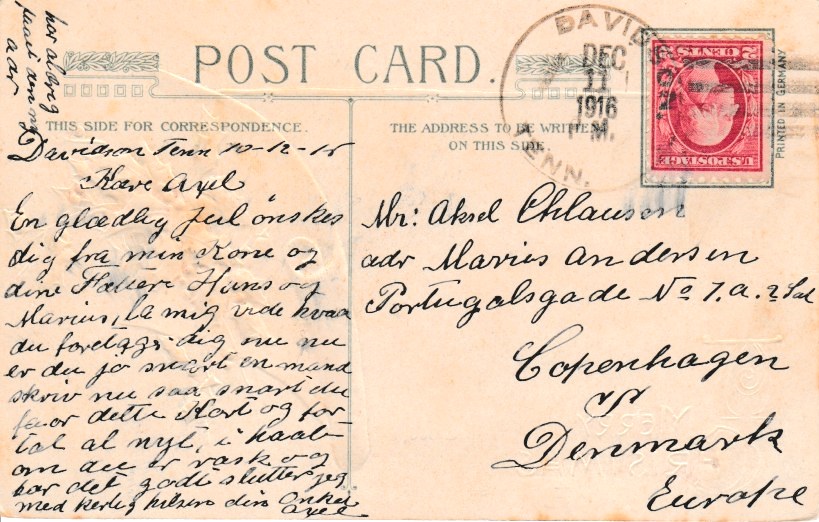 POST CARD.
THIS SIDE FOR CORRESPONDENCE.
THE ADDRESS TO BE WRITTEN
ON THIS SIDE.
DAVIDSON
DEC
11
1916
P.M.
TENN.
2 CENTS 2
U.S. POSTAGE
PRINTED IN GERMANY
har aldrig
faaet
adr
Davidson Tenn 10-12-16
Kære Axel
En glædlig Jul önskes
dig fra min Kone og
dine Fættere Hans og
Marius, la mig vide hvad
du foretage dig nu nu
er du jo snart en mand
skriv nu saa snart du
faar dette Kort og for
tal al nyt, i haab
om du er rask og
har det godt slutter jeg
med kerlig hilsen din Onkel
Axel
Mr: Aksel Chlausen
adr Maries andersen
Portugalsgade No 7. a. 2 Sal
Copenhagen
S
Denmark
Europe